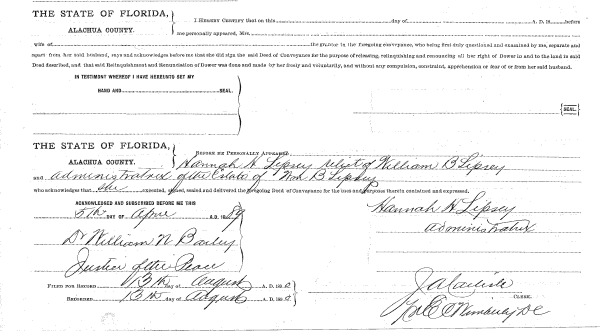 THE STATE OF FLORIDA,
ALACHUA COUNTY.
I HEREBY CERTIFY that on this day of A. D. 18 before
me personally appeared, Mrs.
wife of the grantor in the foregoing conveyance, who being first duly questioned and examined by me, separate and
apart from her said husband, says and acknowledges before me that she did sign the said Deed of Conveyance for the purpose of releasing, relinquishing and renouncing all her right of Dower in and to the land in said
Deed described, and that said Relinquishment and Renunciation of Dower was done and made by her freely and voluntarily, and without any compulsion, constraint, apprehension or fear of or from her said husband.
IN TESTIMONY WHEREOF I HAVE HEREUNTO SET MY
HAND AND SEAL.
SEAL.
THE STATE OF FLORIDA,
ALACHUA COUNTY.
BEFORE ME PERSONALLY APPEARED
Hannah H Lipsey relict of William B Lipsey
and administratrix of the Estate of Wm B Lipsey
who acknowledges that she executed, signed, sealed and delivered the foregoing Deed of Conveyance for the uses and purposes therein contained and expressed.
ACKNOWLEDGED AND SUBSCRIBED BEFORE ME THIS
5th DAY OF April A. D. 1889
Hannah H Lipsey
administratrix
William N
Justice of the Peace
FILED FOR RECORD 13th day of August A. D. 18
RECORDED 13th day of August A. D. 18
J A Carlisle
CLERK.
DC